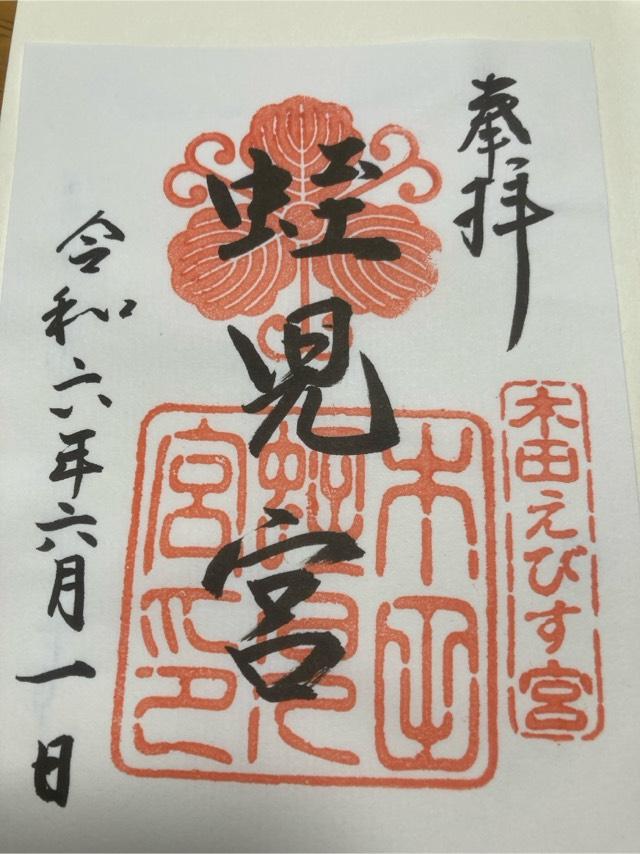 奉拝
木田えびす宮
蛭児宮
木田
蛭児
宮印
令和六年六月一日